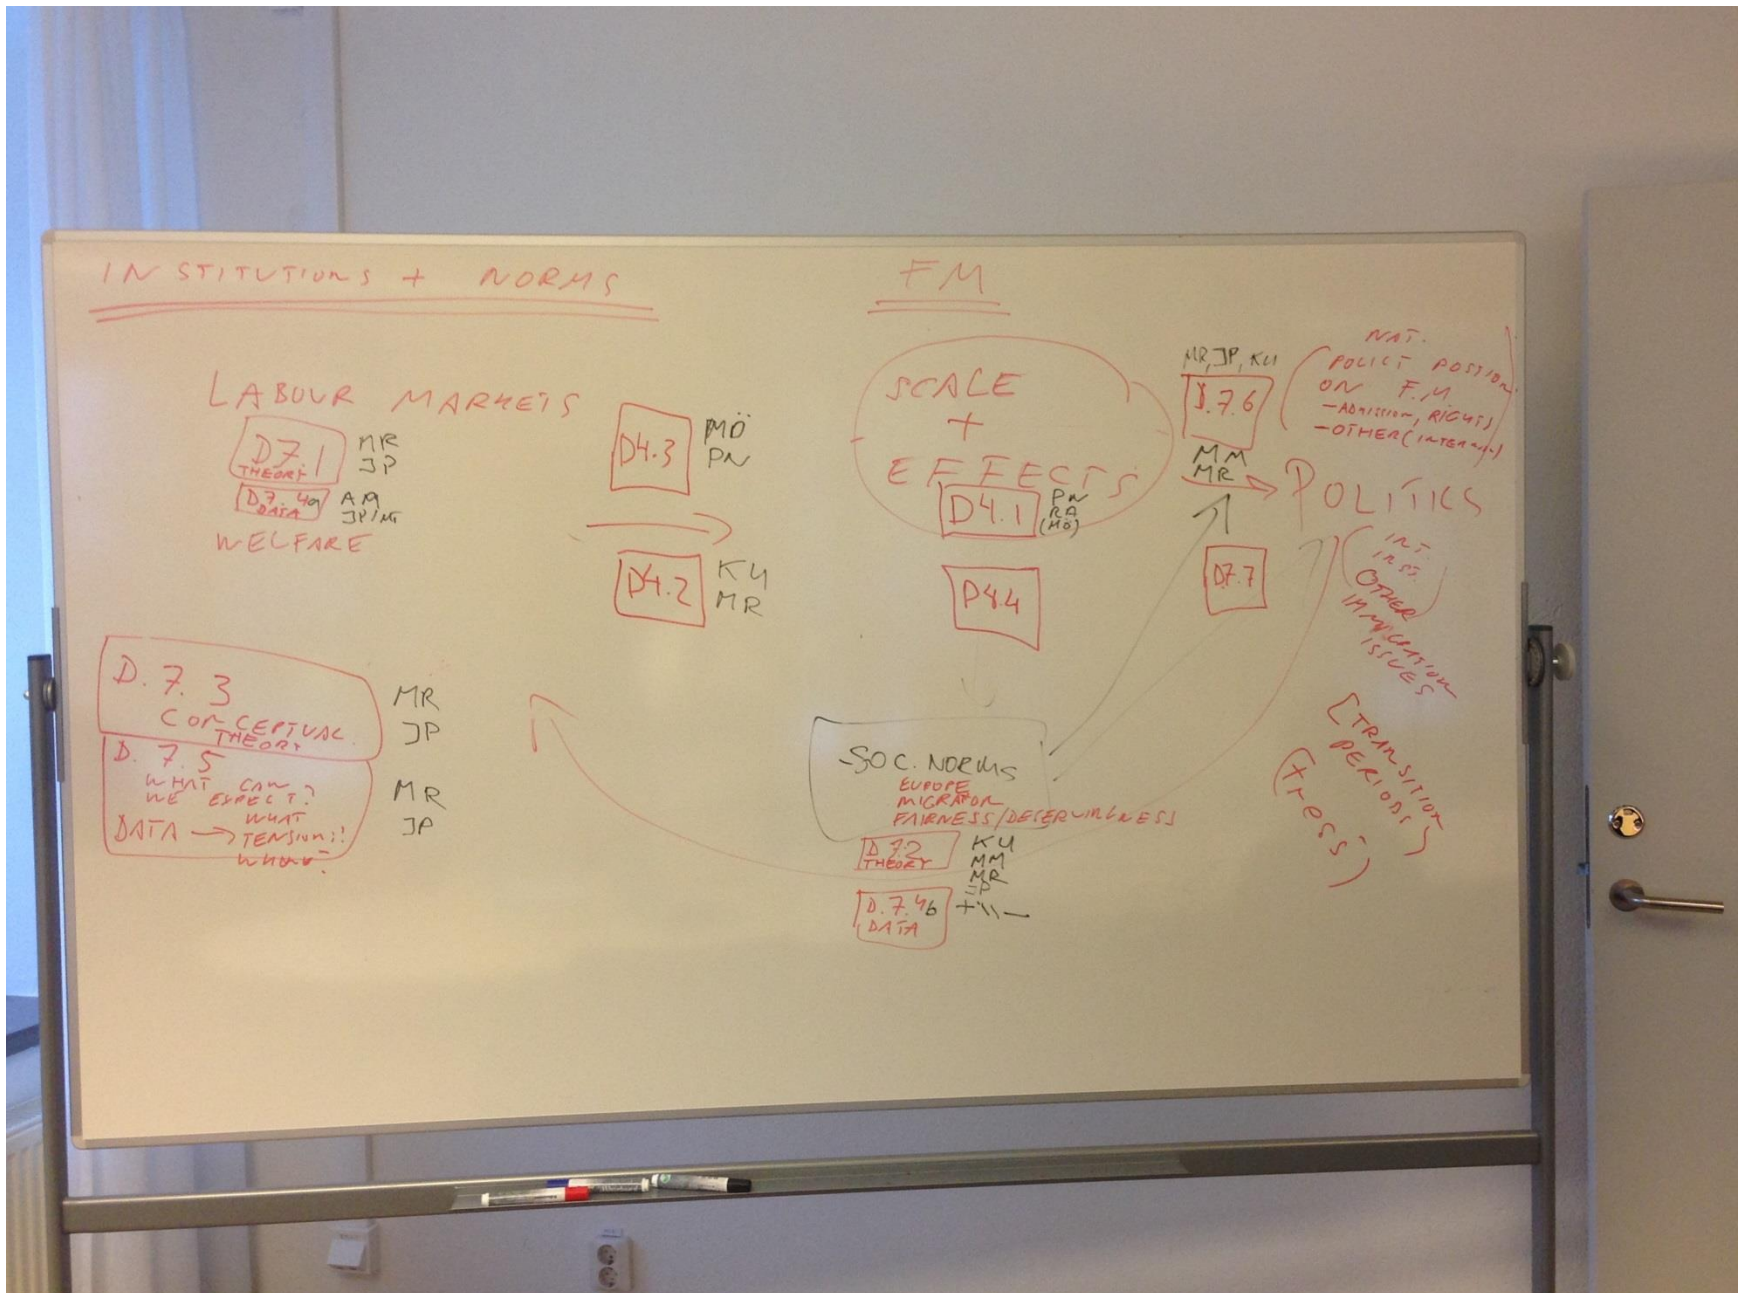 INSTITUTIONS + NORMS
FM
LABOUR MARKETS
D7.1
THEORY
MR
JP
D.7.4a
DATA
AM
WELFARE
D4.3
MÖ
PN
D4.2
KU
MR
SCALE
+
EFFECTS
D4.1
PN
RA
(MÖ)
D4.4
MR, JP, KU
D.7.6
MM
MR
D7.7
NAT.
POLICY POSITION
ON F.M
-ADMISSION, RIGHTS
-OTHER
POLITICS
(INT.
INST.)
OTHER
IMMIGRATION
ISSUES
[TRANSITION
PERIODS]
D.7.3
CONCEPTUAL
THEORY
MR
JP
D.7.5
WHAT CAN
WE EXPECT?
WHAT
DATA → TENSIONS!
MR
JP
-SOC. NORMS
EUROPE
MIGRATION
FAIRNESS/DESERVINGNESS
D.7.2
THEORY
KU
MM
MR
JP
D.7.4b
DATA